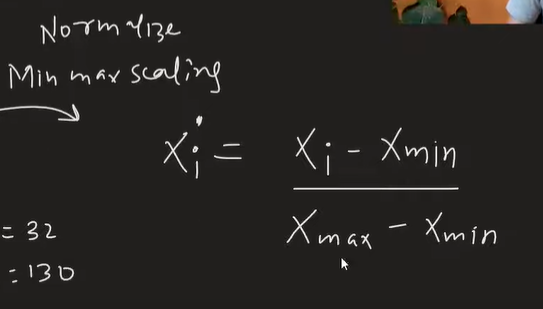 Normalize
Min max scaling
Xi' = Xi - Xmin
Xmax - Xmin
= 32
= 130